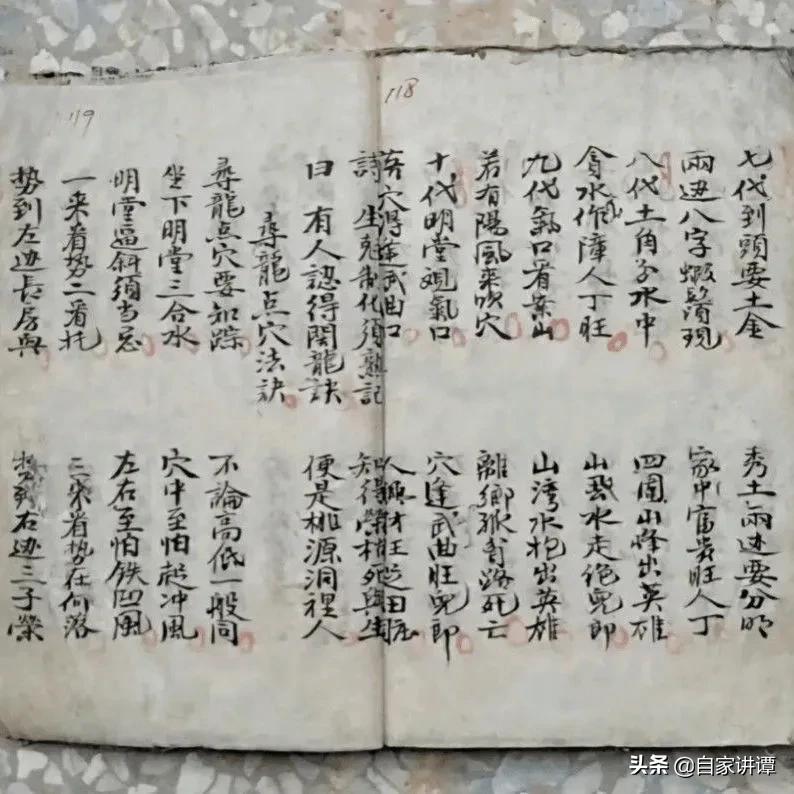 118
七代到頭要土金
秀土兩边要分明
兩边八字蝦鬚現
家中富贵旺人丁
八代土角 水中
四围山峰出英雄
貪水作障人丁旺
山飛水走绝兒郎
九代氣口看案山
山湾水抱出英雄
若有陽風来吹穴
離鄉孤 路死亡
十代明堂观氣口
穴逢武曲旺兒郎
穴得逢武曲口
人興才旺 田庄
詩 生尅制化须熟記
知得榮枯死與生
曰 有人認得関龍訣
便是桃源洞裡人
119
尋龍点穴法訣
尋龍点穴要知踪
不論高低一般同
坐下明堂三合水
穴中至怕起冲風
明堂逼斜須当忌
左右至怕铁凹風
一来看势二看托
三来看势在何落
势到左边長房興
势到右边三子榮
头条 @自家讲谭